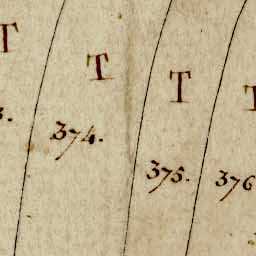 T
T
T
T
374.
375.
376